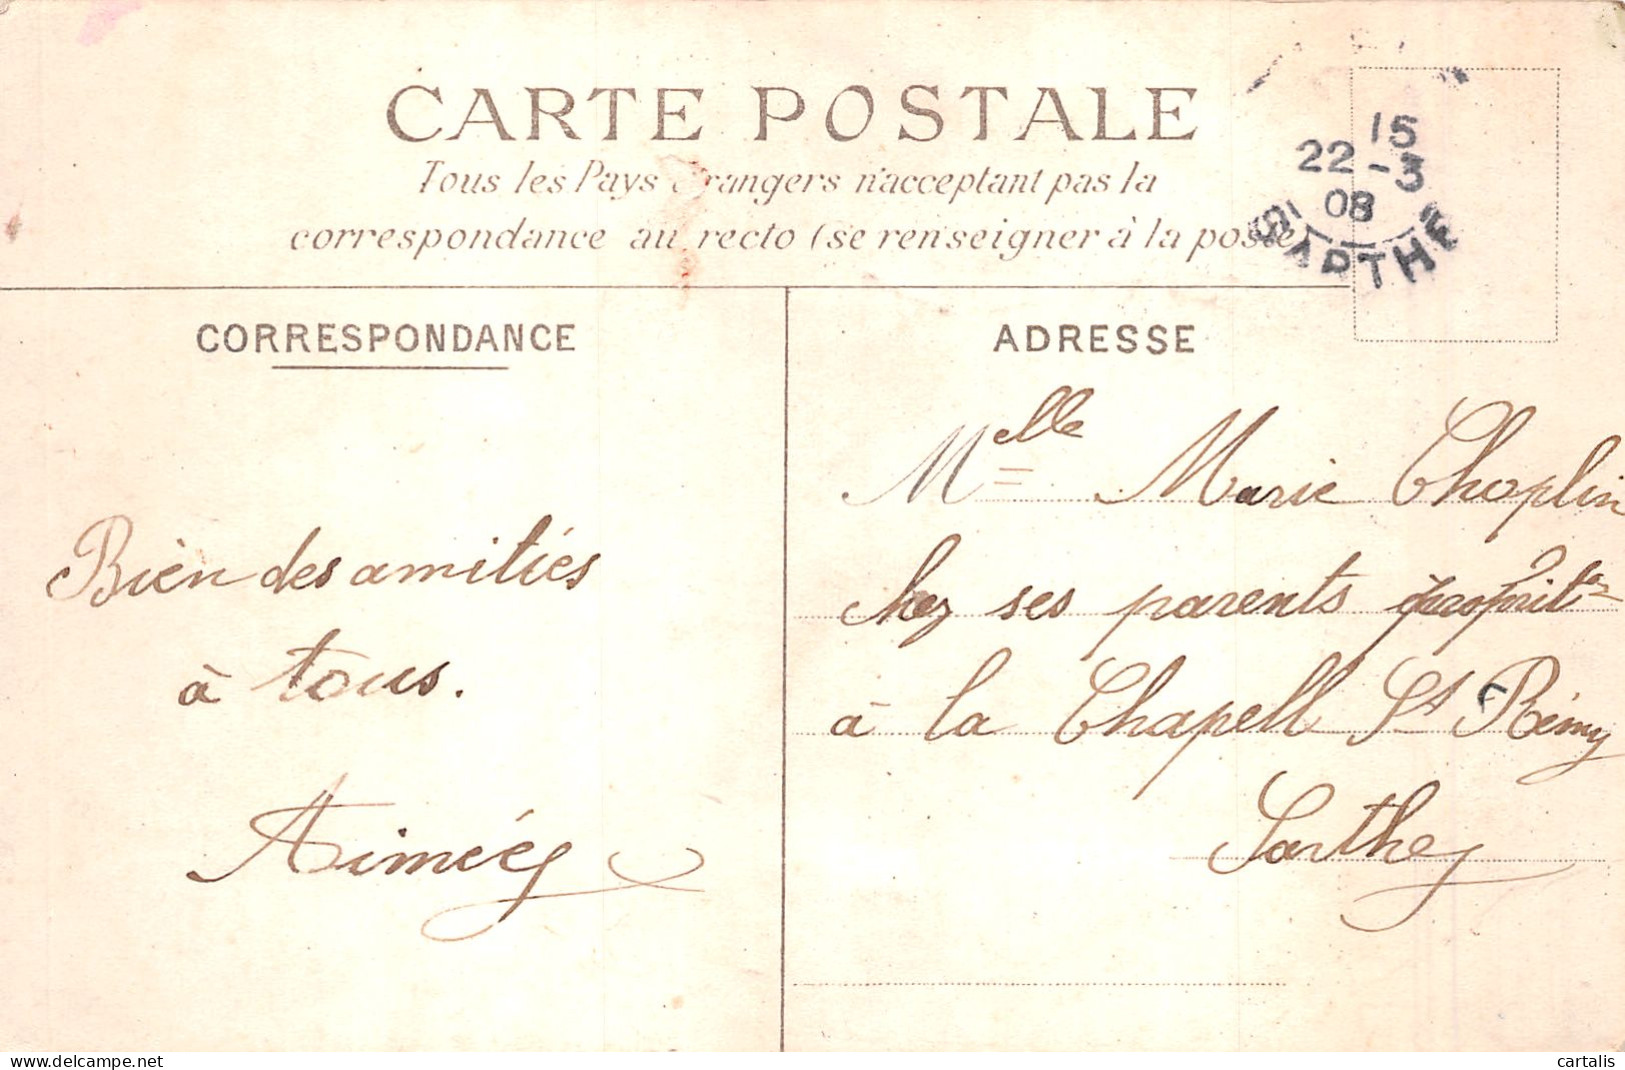 CARTE POSTALE
Tous les Pays étrangers n'acceptant pas la
correspondance au recto (se renseigner à la poste)
15
22 -3
08
SARTHE
CORRESPONDANCE
ADRESSE
Bien des amitiés
à tous.
Aimée
Melle Marie Choplin
chez ses parents
à la Chapell St Rémy
Sarthe
cartalis